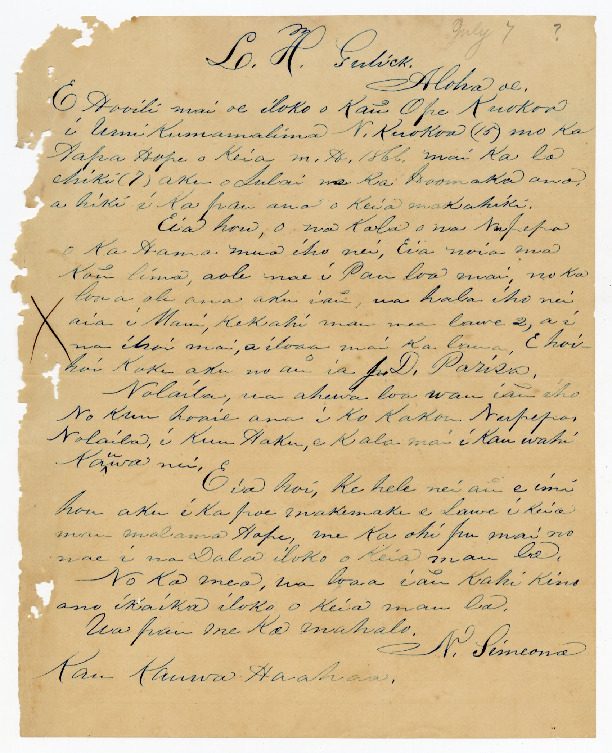 July 7 ?
L. H. Gulick.
Aloha oe.
E Hooili mai oe iloko o Kaū Ope Kuokoa
i Umi Kumamalima N. Kuokoa (15) mo ka
Hapa Hope o Keia m.H. 1866. mai Ka la
ehiku (7) aku o Iulai me Ka Hoomaka ana,
a hiki i Ka pau ana o Keia makahiki.
Eia hou, o na Kala o na Nupepa
o Ka Hamamua iho nei, Eia noia ma
Koū lima, aole nae i Pau loa mai, no ka
loaa ole ana aku iaū, ua hala iho nei
aia i Maui, Kekahi mau mea lawe 2, a i
na i hoi mai, a iloaa mai Ka lakou, E hoi-
hoi Koke aku no aū ia J. D. Paris.
Nolaila, ua ahewa loa wau iaū iho
No Kuu hooie ana i Ko Kakou Nupepa,
Nolaila, i Kuu Haku, e Kala mai i Kau wahi
Kaūwa nei,
Eia hoi, Ke hele nei aū e imi
hou aku i Ka poe makemake e Lawe i Keia
mau malama Hope, me Ka ohi pu mai no
nae i na Dala iloko o Keia mau la.
No Ka mea, ua loaa iaū Kahi Kino
ano ikaika iloko o Keia mau la.
Ua pau me Ka mahalo.
N. Simeona
Kau Kauwa Haahaa.